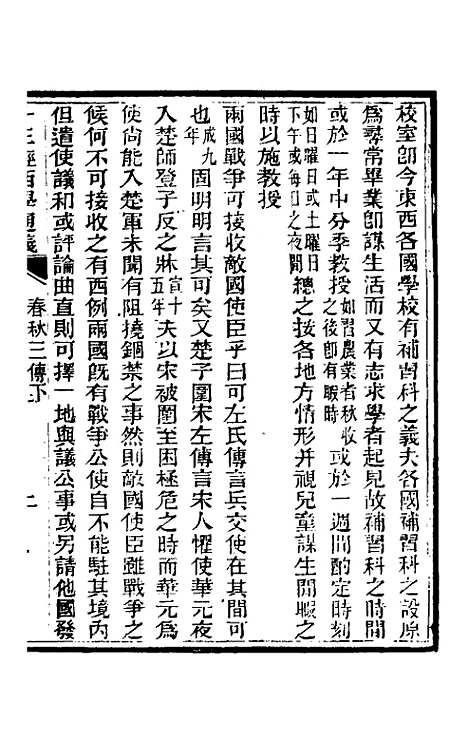 校室卽今東西各國學校有補習科之義夫各國補習科之設原
爲尋常畢業卽謀生活而又有志求學者起見故補習科之時間
或於一年中分季敎授如習農業者秋收之後卽有暇時或於一週間酌定時刻
如日曜日或土曜日下午或每日之夜間總之按各地方情形并視兒童謀生閒暇之
時以施敎授
兩國戰爭可接收敵國使臣乎曰可左氏傳言兵交使在其間可
也成九年固明明言其可矣又楚子圍宋左傳言宋人懼使華元夜
入楚師登子反之牀宣十五年夫以宋被圍至困極危之時而華元爲
使尙能入楚軍未聞有阻撓錮禁之事然則敵國使臣雖戰爭之
候何不可接收之有西例兩國旣有戰爭公使自不能駐其境內
但遣使議和或評論曲直則可擇一地與議公事或另請他國發
十三經西學通義
春秋三傳下
二